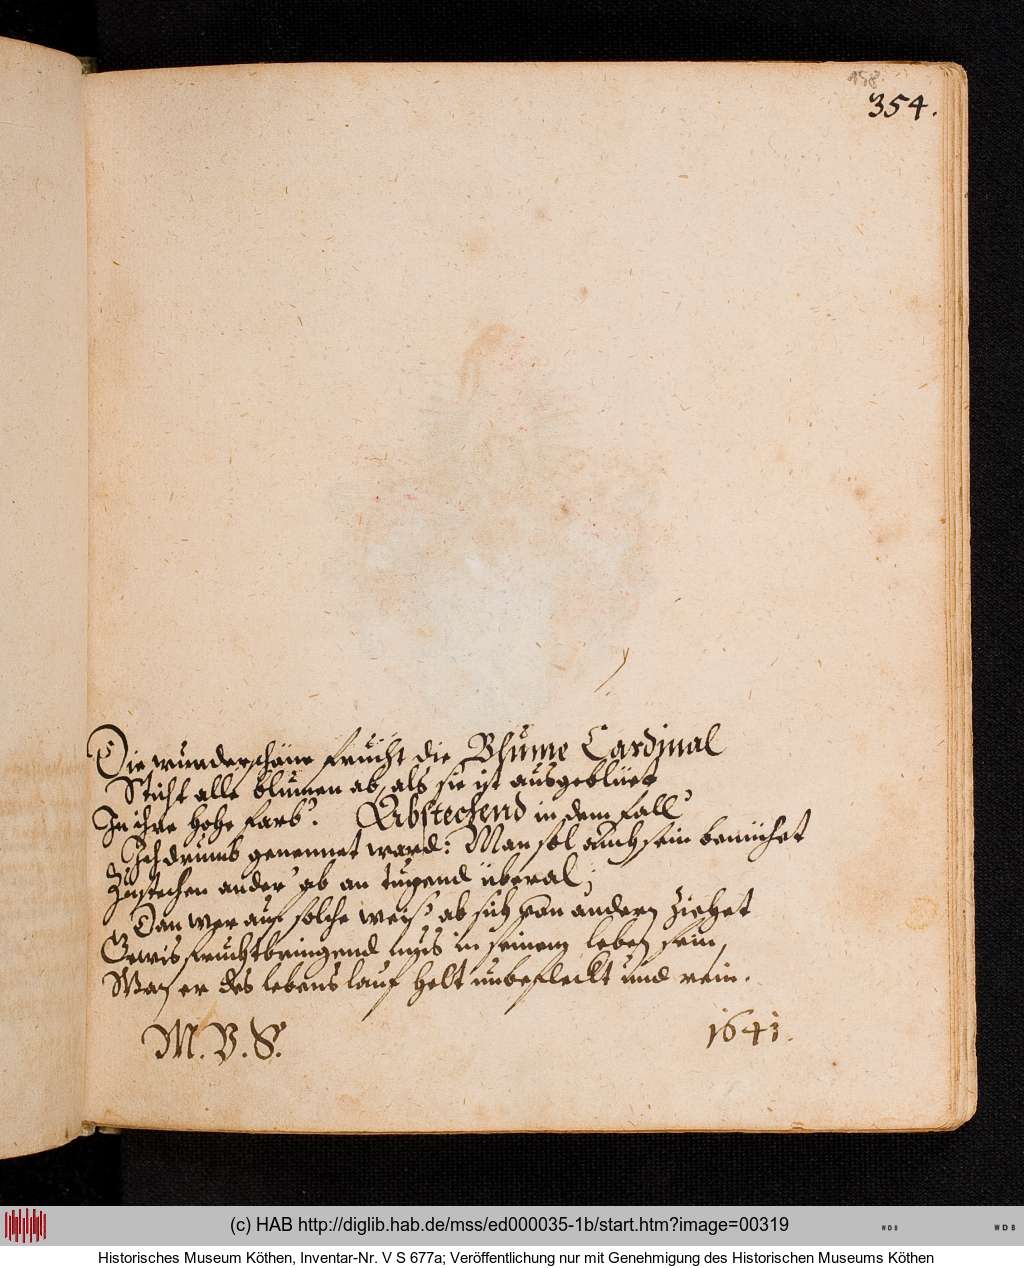 158.
354.
Die wunderschöne frucht die Blume Cardjnal
Sticht alle blumen ab, als sie ist ausgeblüet
In ihre hohe farb'. Abstechend in dem fall'
Ich drumb genennet ward: Man sol auch sein bemühet
Zustechen ander' ab an tugend überal,
Dan wer auf solche weiß' ab sich von andern ziehet
Gewis fruchtbringend mus in seinem leben sein,
Wan er des lebens lauf helt unbefleckt und rein.
M. V. S. 1641.
(c) HAB http://diglib.hab.de/mss/ed000035-1b/start.htm?image=00319
WDB WDB
Historisches Museum Köthen, Inventar-Nr. V S 677a; Veröffentlichung nur mit Genehmigung des Historischen Museums Köthen